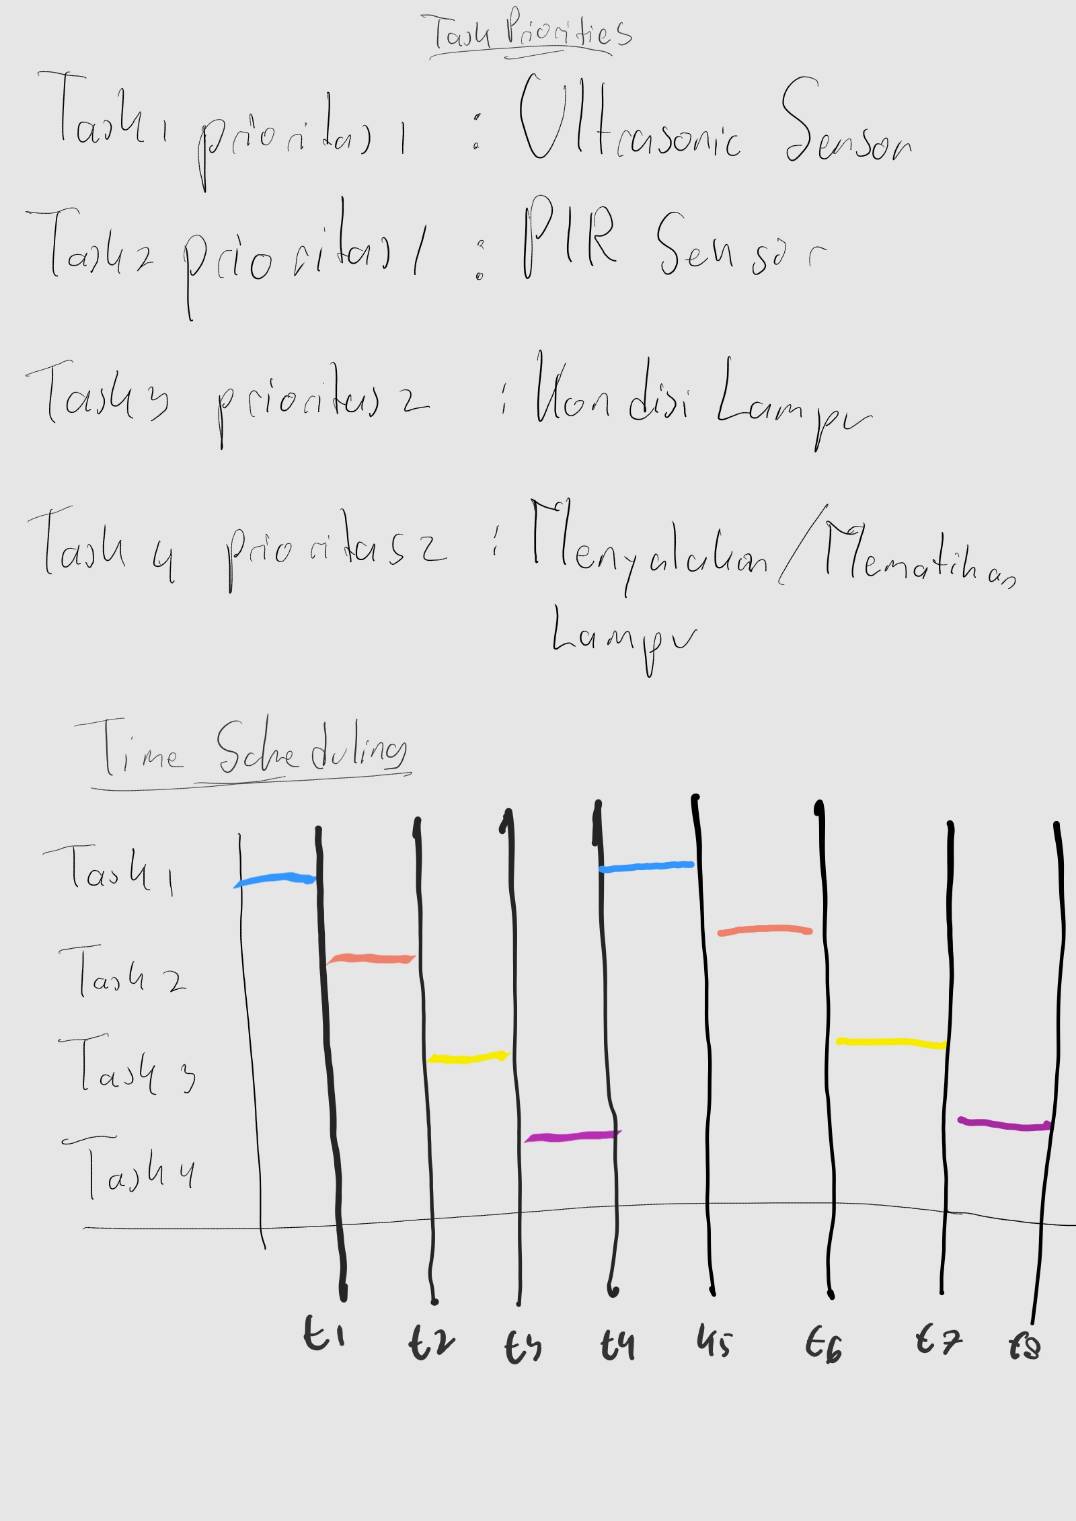 Task Priorities
Task 1 prioritas 1 : Ultrasonic Sensor
Task 2 prioritas 1 : PIR Sensor
Task 3 prioritas 2 : Kondisi Lampu
Task 4 prioritas 2 : Menyalakan/Mematikan
Lampu
Time Scheduling
Task 1
Task 2
Task 3
Task 4
t1 t2 t3 t4 t5 t6 t7 t8